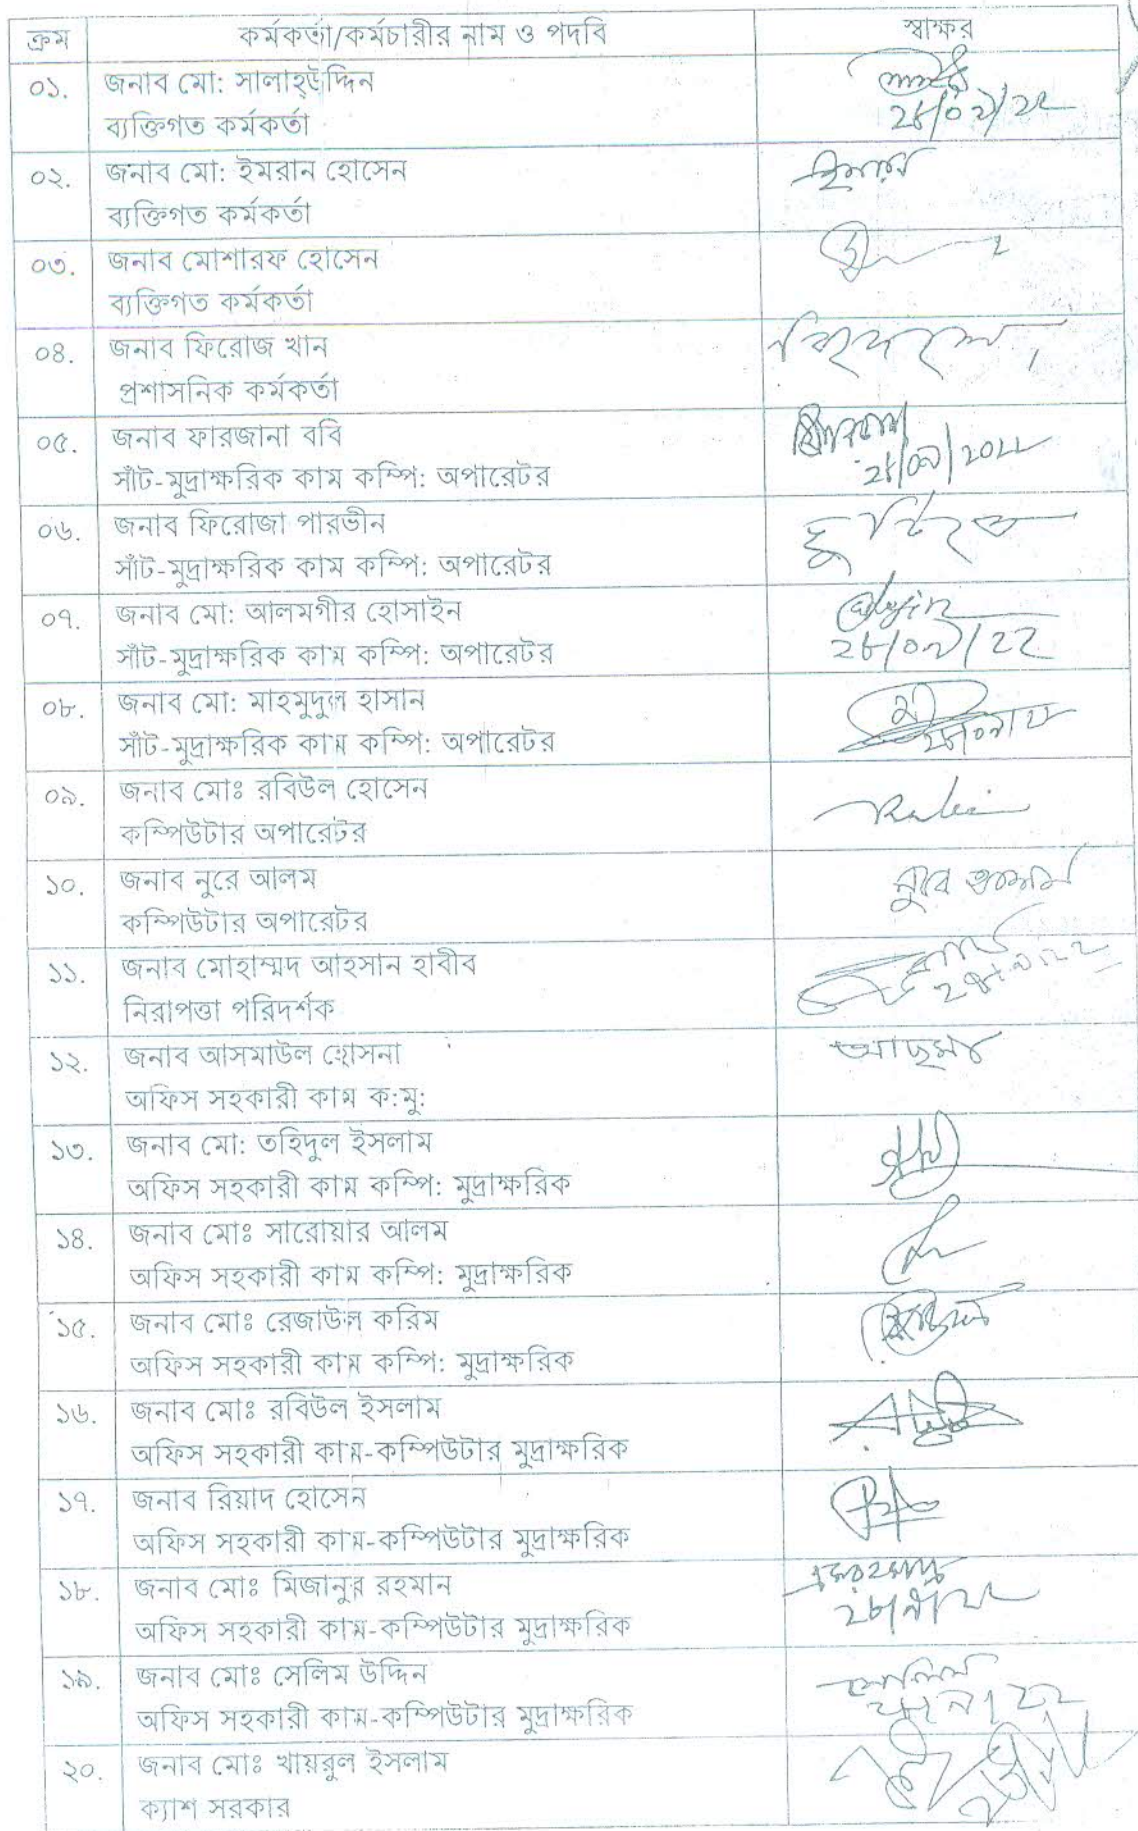 ক্রম কর্মকর্তা/কর্মচারীর নাম ও পদবি স্বাক্ষর
০১. জনাব মো: সালাহ্উদ্দিন
ব্যক্তিগত কর্মকর্তা
২৮/০৯/২২
০২. জনাব মো: ইমরান হোসেন
ব্যক্তিগত কর্মকর্তা
০৩. জনাব মোশারফ হোসেন
ব্যক্তিগত কর্মকর্তা
০৪. জনাব ফিরোজ খান
প্রশাসনিক কর্মকর্তা
০৫. জনাব ফারজানা ববি
সাঁট-মুদ্রাক্ষরিক কাম কম্পি: অপারেটর
২৮/০৯/২০২২
০৬. জনাব ফিরোজা পারভীন
সাঁট-মুদ্রাক্ষরিক কাম কম্পি: অপারেটর
০৭. জনাব মো: আলমগীর হোসাইন
সাঁট-মুদ্রাক্ষরিক কাম কম্পি: অপারেটর
২৮/০৯/২২
০৮. জনাব মো: মাহমুদুল হাসান
সাঁট-মুদ্রাক্ষরিক কাম কম্পি: অপারেটর
০৯. জনাব মোঃ রবিউল হোসেন
কম্পিউটার অপারেটর
১০. জনাব নুরে আলম
কম্পিউটার অপারেটর
নুরে আলম
১১. জনাব মোহাম্মদ আহসান হাবীব
নিরাপত্তা পরিদর্শক
১২. জনাব আসমাউল হোসনা
অফিস সহকারী কাম ক:মু:
১৩. জনাব মো: তহিদুল ইসলাম
অফিস সহকারী কাম কম্পি: মুদ্রাক্ষরিক
১৪. জনাব মোঃ সারোয়ার আলম
অফিস সহকারী কাম কম্পি: মুদ্রাক্ষরিক
১৫. জনাব মোঃ রেজাউল করিম
অফিস সহকারী কাম কম্পি: মুদ্রাক্ষরিক
১৬. জনাব মোঃ রবিউল ইসলাম
অফিস সহকারী কাম-কম্পিউটার মুদ্রাক্ষরিক
১৭. জনাব রিয়াদ হোসেন
অফিস সহকারী কাম-কম্পিউটার মুদ্রাক্ষরিক
১৮. জনাব মোঃ মিজানুর রহমান
অফিস সহকারী কাম-কম্পিউটার মুদ্রাক্ষরিক
২৮/৯/২২
১৯. জনাব মোঃ সেলিম উদ্দিন
অফিস সহকারী কাম-কম্পিউটার মুদ্রাক্ষরিক
২০. জনাব মোঃ খায়রুল ইসলাম
ক্যাশ সরকার